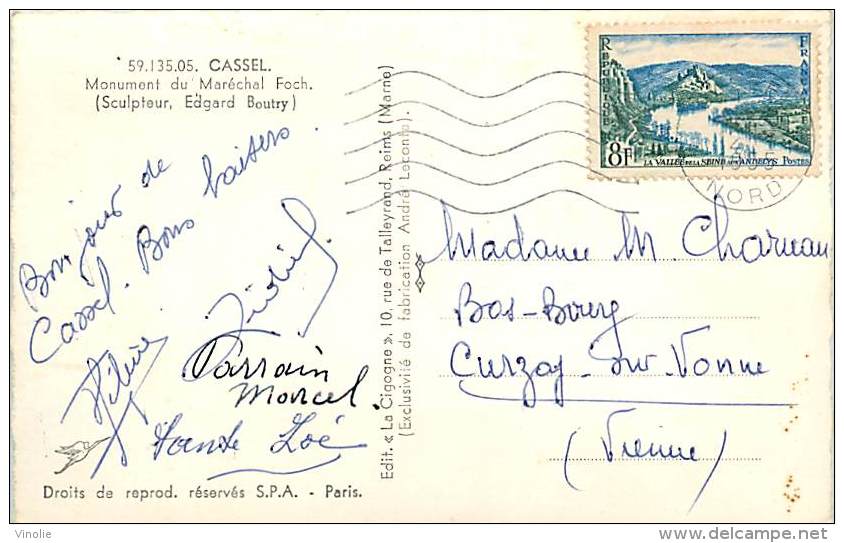 59.135.05. CASSEL.
Monument du Maréchal Foch.
(Sculpteur, Edgard Boutry)
Bonjour de
Cassel. Bons baisers.
Parrain
Marcel.
Tante Zoé
Droits de reprod. réservés S.P.A. - Paris.
Edit. « La Cigogne », 10, rue de Talleyrand, Reims (Marne)
(Exclusivité de fabrication André Leconte).
RÉPUBLIQUE
FRANÇAISE
8F
LA VALLÉE DE LA SEINE AUX ANDELYS POSTES
1955
NORD
Madame M. Charueau
Bas-Bourg
Curzay-sur-Vonne
(Vienne)
Vinolie
http://www.delcampe.net